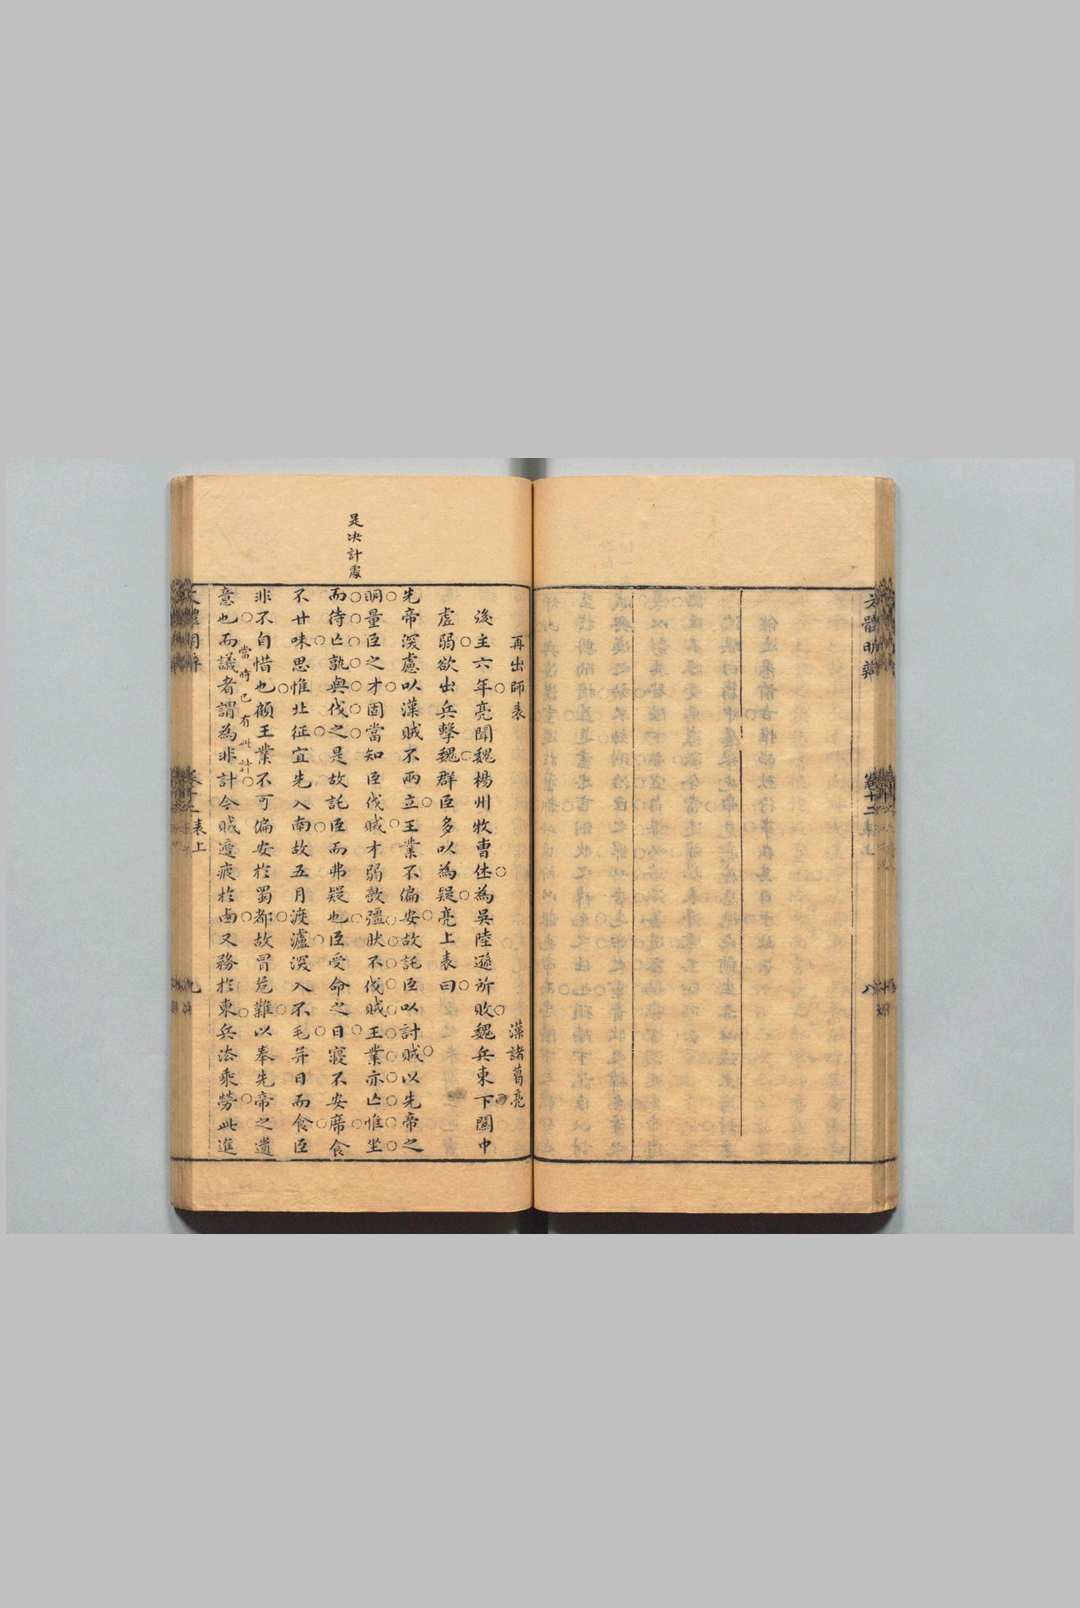 文體明辯
卷十二
八
再出師表
漢諸葛亮
後主六年亮聞魏楊州牧曹休為吳陸遜所敗魏兵東下關中
虛弱欲出兵擊魏群臣多以為疑亮上表曰
先帝深慮以漢賊不兩立王業不偏安故託臣以討賊以先帝之
明量臣之才固當知臣伐賊才弱敵彊狀不伐賊王業亦亡惟坐
而待亡孰與伐之是故託臣而弗疑也臣受命之日寢不安席食
不甘味思惟北征宜先入南故五月渡瀘深入不毛并日而食臣
非不自惜也顧王業不可偏安於蜀都故冒危難以奉先帝之遺
當時已有此計
意也而議者謂為非計今賊適疲於西又務於東兵法乘勞此進
是决計處
表上
九